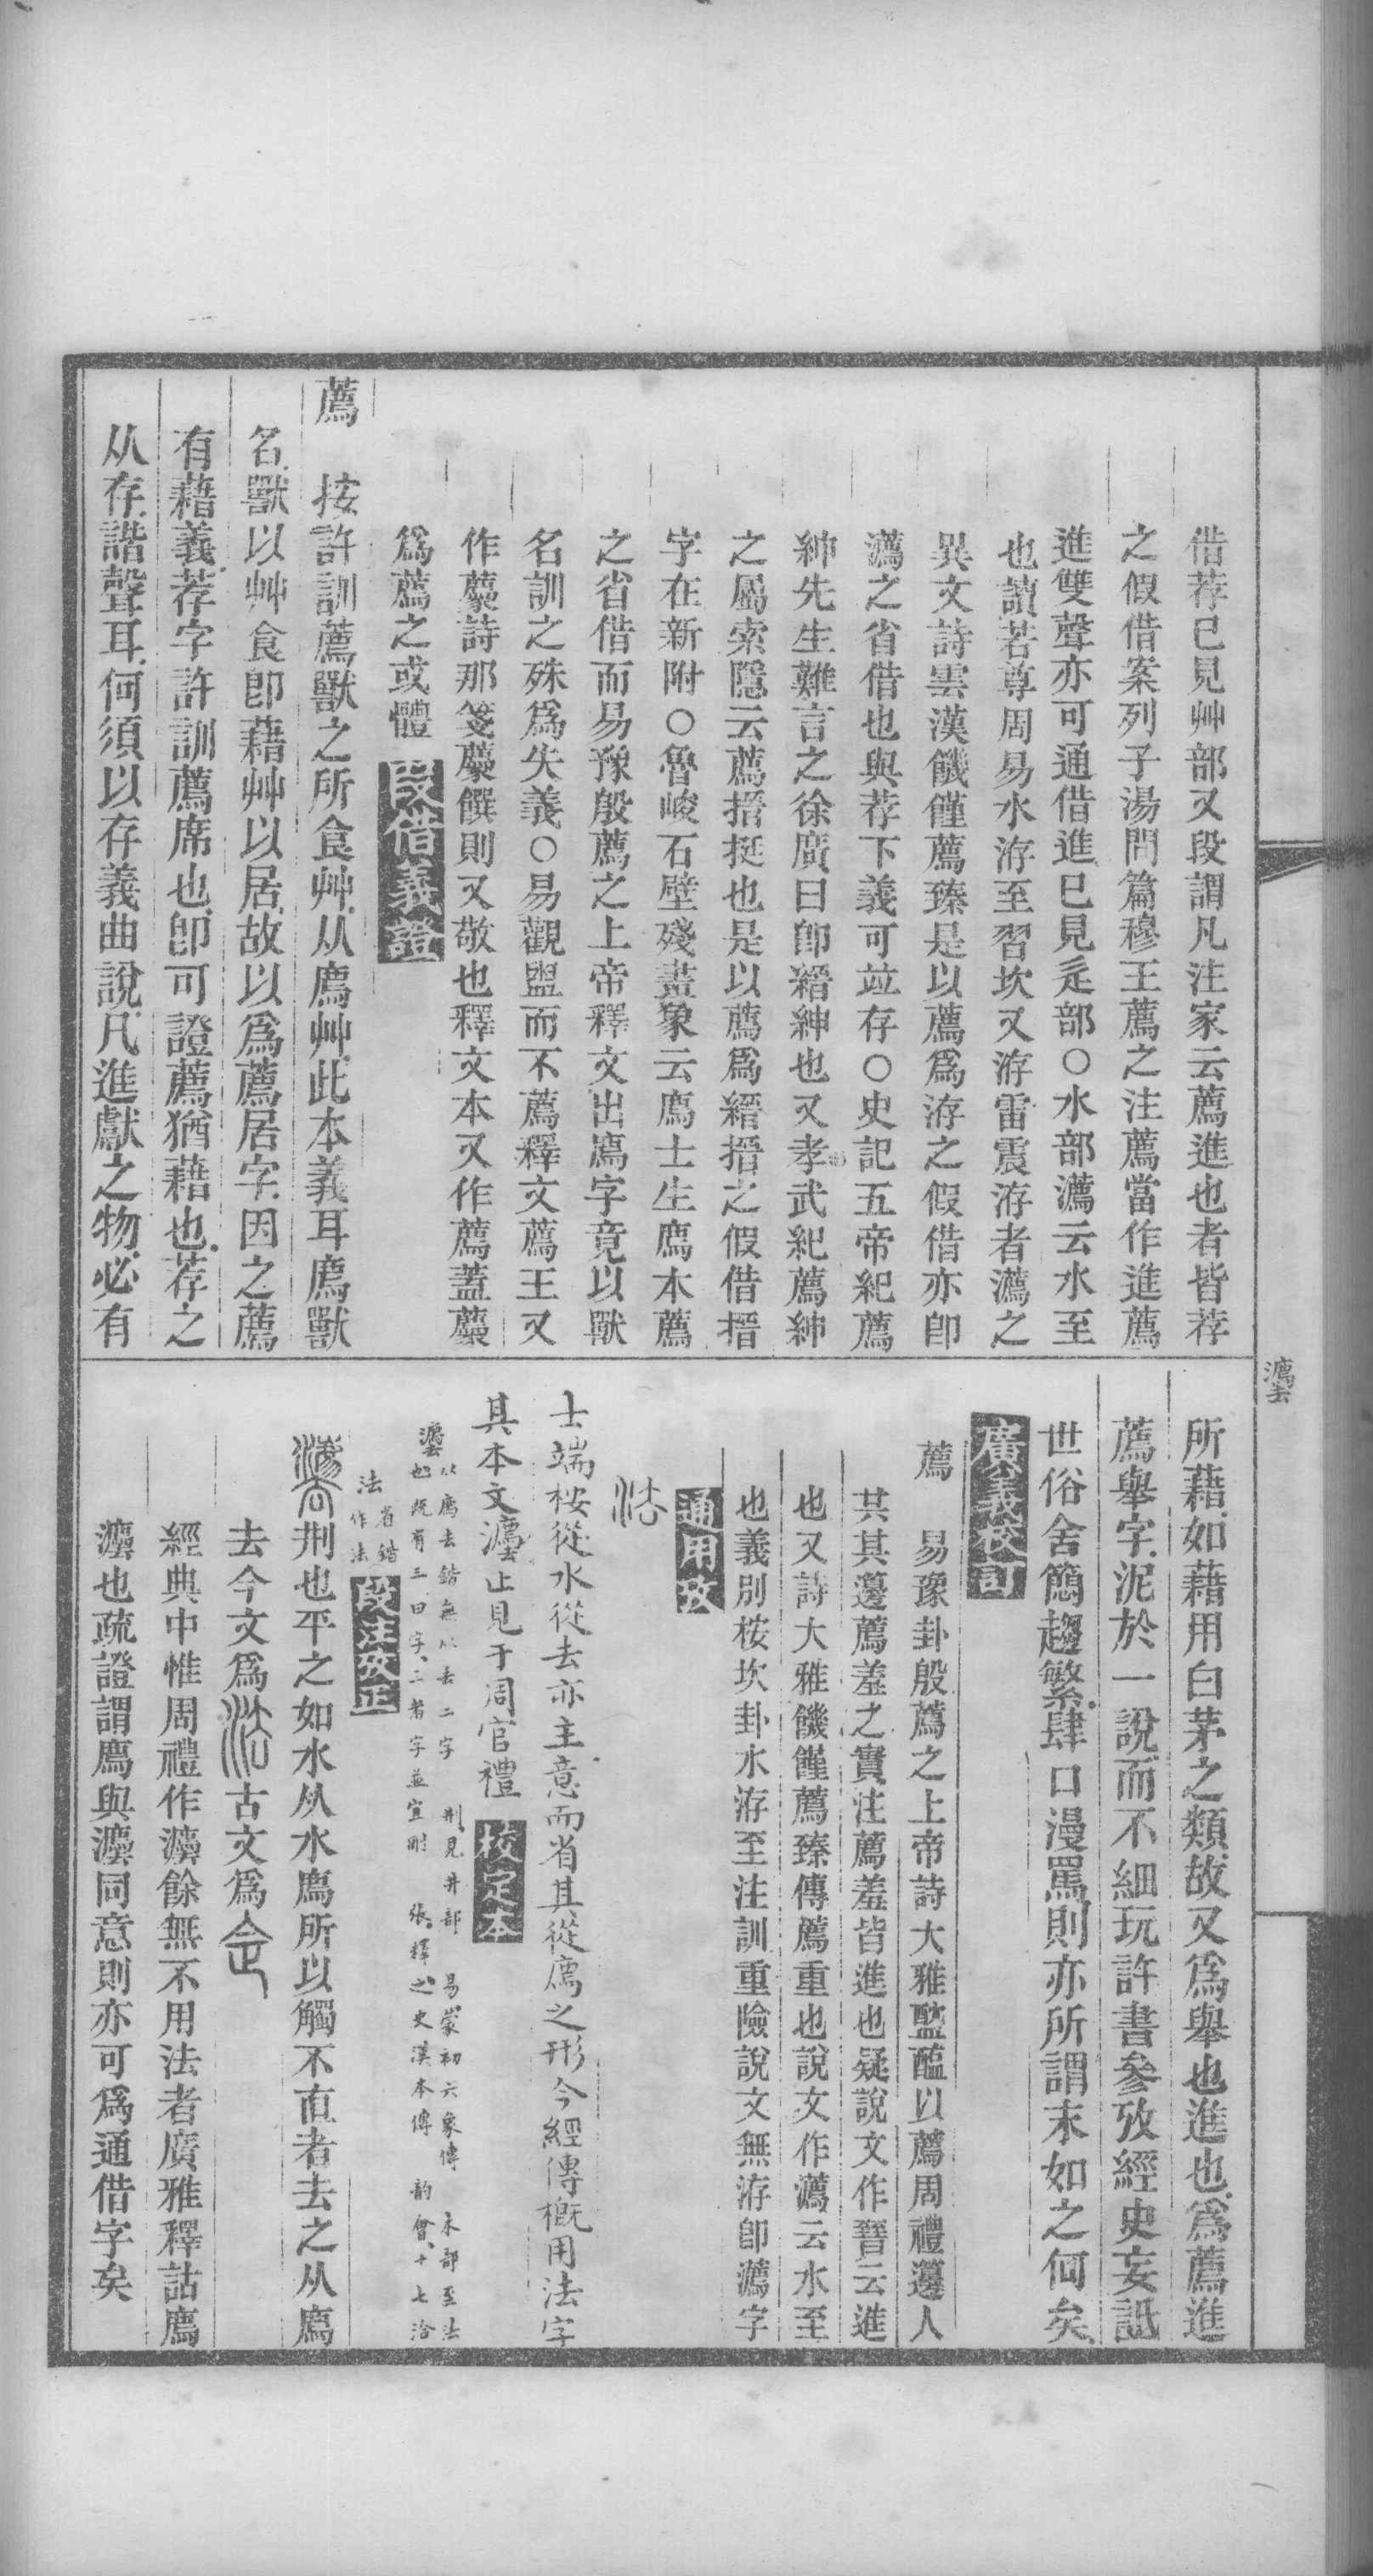 借荐已見艸部又段謂凡注家云薦進也者皆荐
之假借案列子湯問篇穆王薦之注薦當作進薦
進雙聲亦可通借進已見辵部○水部瀳云水至
也讀若尊周易水洊至習坎又洊雷震洊者瀳之
異文詩雲漢饑僅薦臻是以薦爲洊之假借亦卽
瀳之省借也與荐下義可竝存○史記五帝紀薦
紳先生難言之徐廣曰卽縉紳也又孝武紀薦紳
之屬索隱云薦搢挺也是以薦爲縉搢之假借搢
字在新附○魯峻石壁殘畫象云廌士生廌本薦
之省借而易豫殷薦之上帝釋文出廌字竟以獸
名訓之殊爲失義○易觀盥而不薦釋文薦王又
作䕯詩那箋䕯饌則又敬也釋文本又作薦蓋䕯
爲薦之或體 段借義證
薦 按許訓薦獸之所食艸从廌艸此本義耳廌獸
名獸以艸食卽藉艸以居故以爲薦居字因之薦
有藉義荐字許訓薦席也卽可證薦猶藉也荐之
从存諧聲耳何須以存義曲說凡進獻之物必有
所藉如藉用白茅之類故又爲舉也進也爲薦進
薦舉字泥於一說而不細玩許書參攷經史妄詆
世俗舍簡趨繁肆口漫罵則亦所謂末如之何矣
廣義校訂
薦 易豫卦殷薦之上帝詩大雅醓醢以薦周禮籩人
共其籩薦羞之實注薦羞皆進也疑說文作晉云進
也又詩大雅饑僅薦臻傳薦重也說文作瀳云水至
也義別桉坎卦水洊至注訓重險說文無洊卽瀳字
通用攷
法
士端桉從水從去亦主意而省其從廌之形今經傳槪用法字
其本文灋止見于周官禮 校定本
灋 以廌去鍇無以去二字 荆見井部 易蒙初六象傳 木部至法
也旣有三曰字二者字並宜刪 張釋之史漢本傳 韵會十七洽
法 省鍇作法 段注攷正
灋 荆也平之如水从水廌所以觸不直者去之从廌
去今文爲法古文爲佱
經典中惟周禮作灋餘無不用法者廣雅釋詁廌
灋也疏證謂廌與灋同意則亦可爲通借字矣
灋